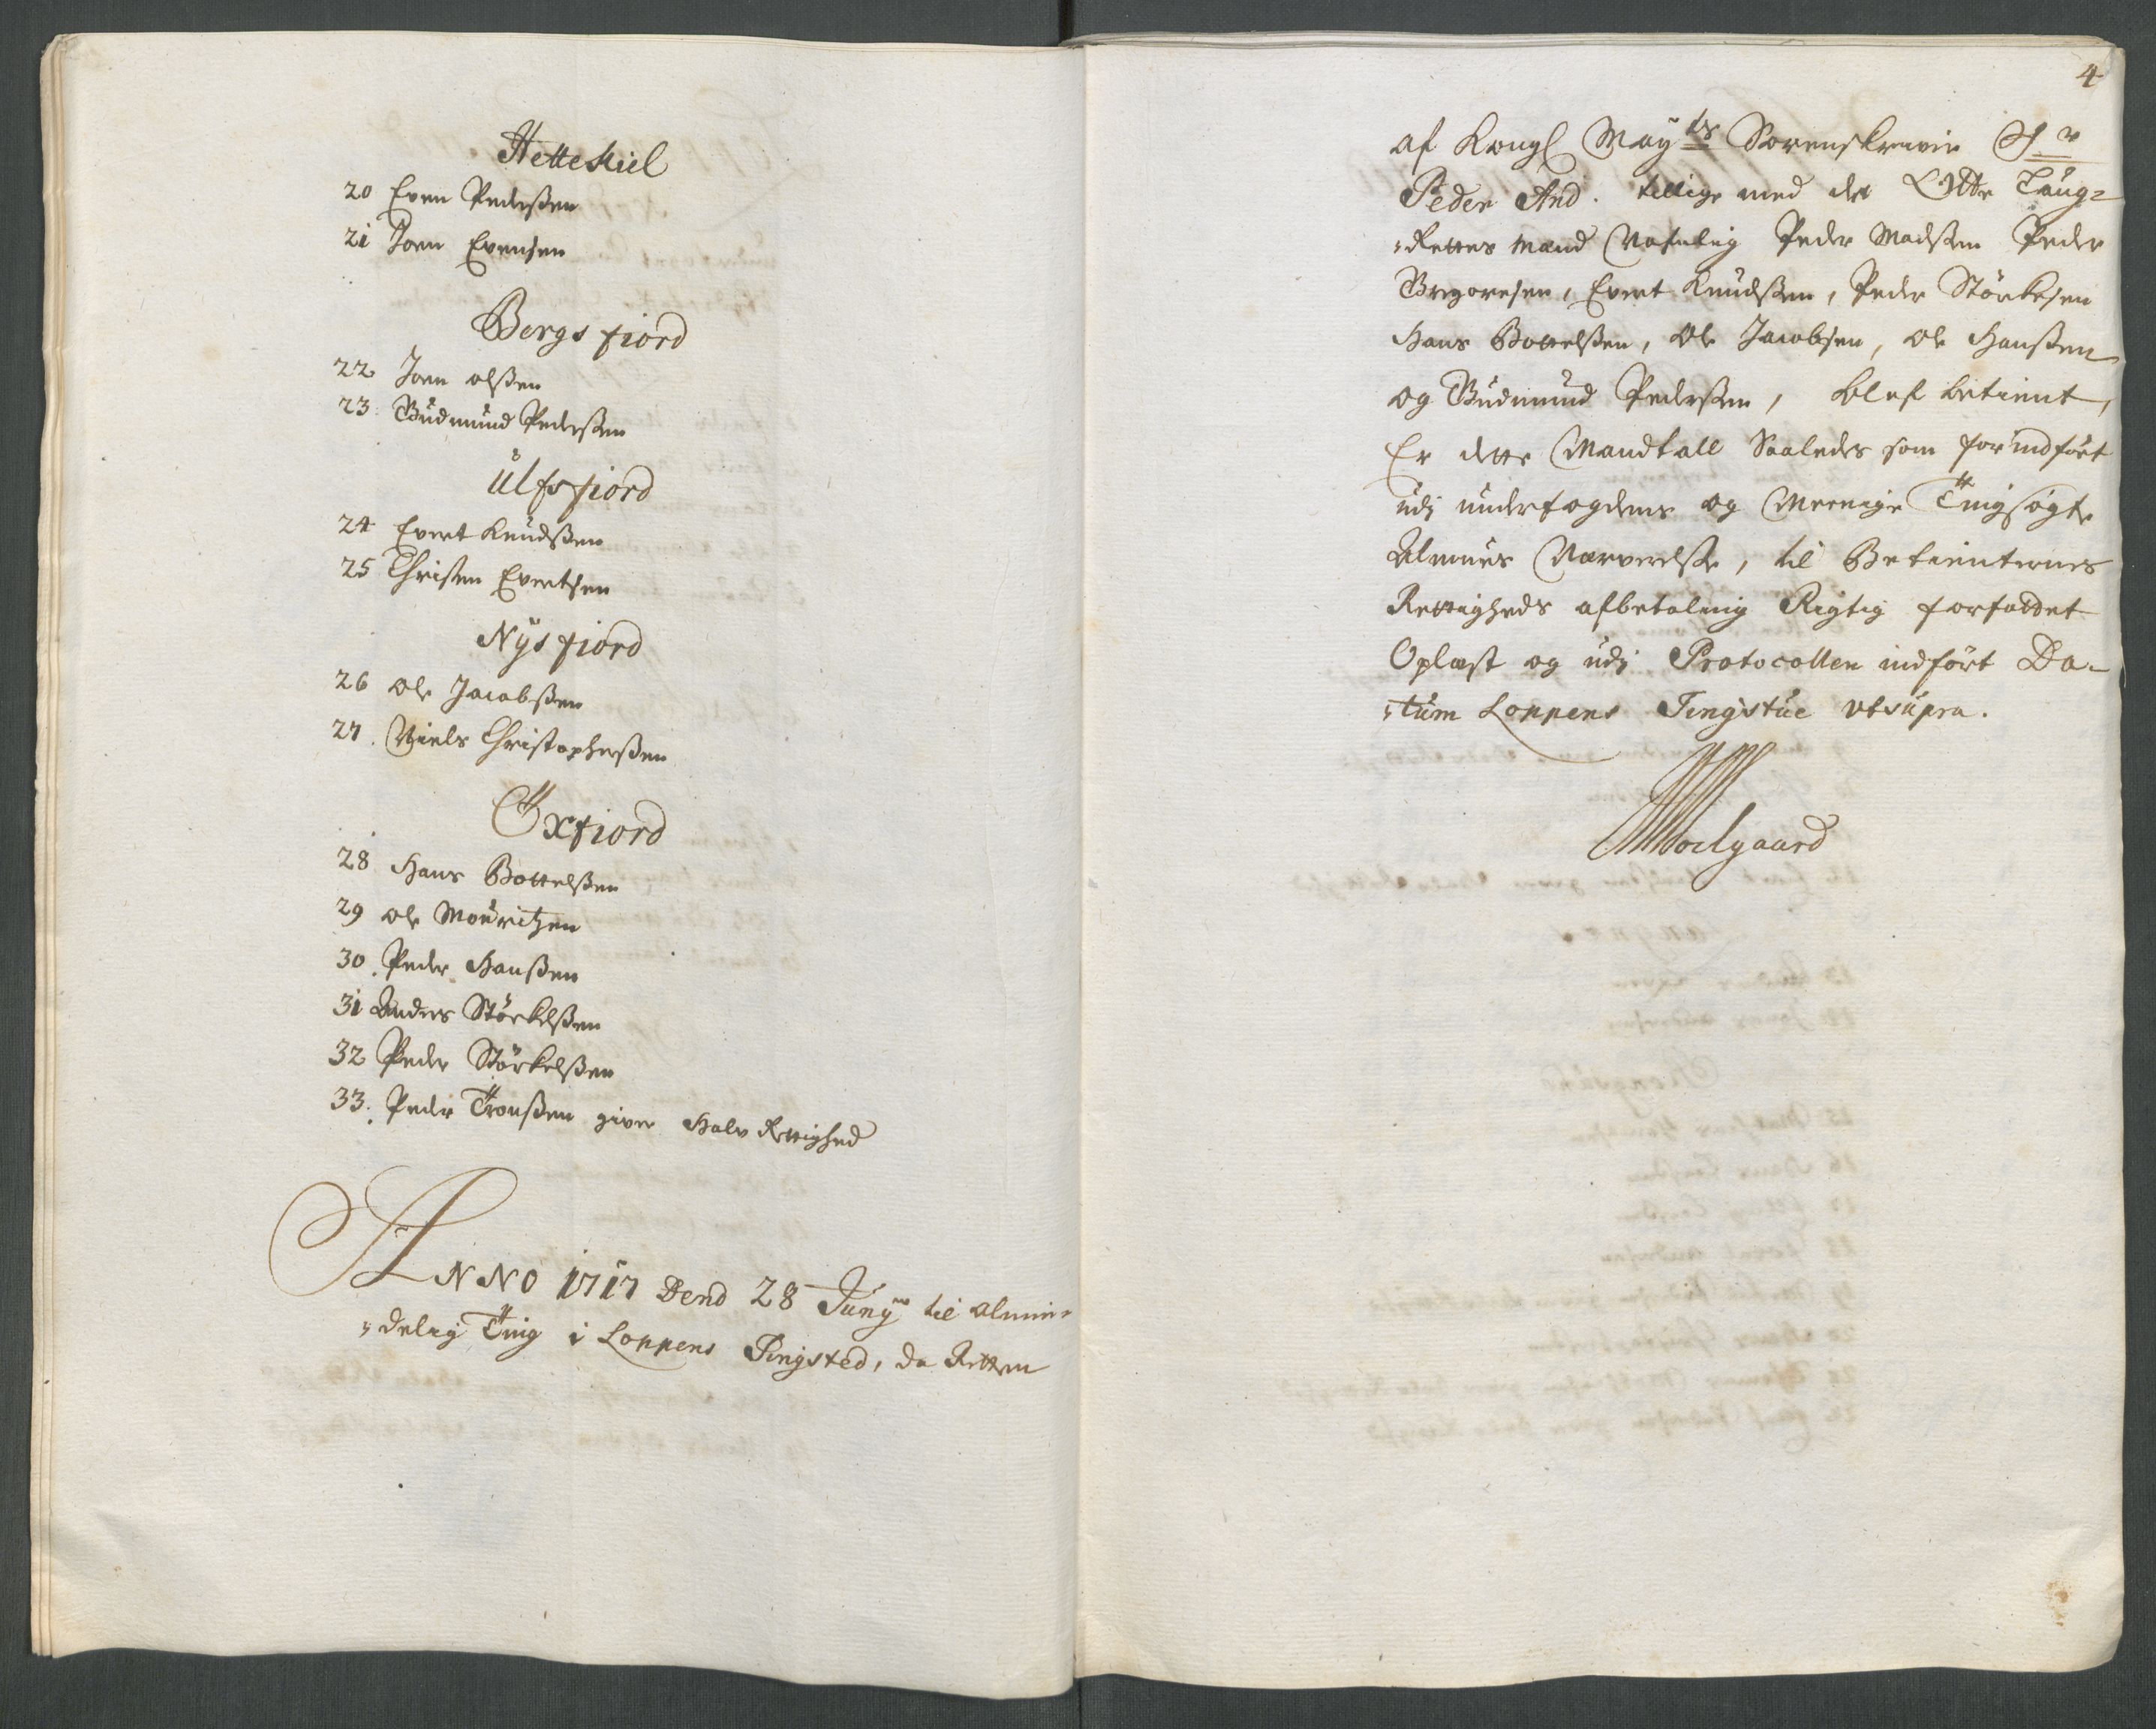 Hetteskiel
20 Even Pederßen
21 Joen Evensen
Bergsfiord
22 Joen olßen
23 Gudmund Pederßen
Ulfsfiord
24 Evert Knudßen
25 Christen Evertsen
Nysfiord
26 Ole Jacobßen
27. Niels Christopherßen
Öxfiord
28 Hans Bottelßen
29 Ole Mouritzen
30. Peder Hanßen
31 Anders Störkelßen
32 Peder Störkelßen
33. Peder Tronßen giver Halv Rettighed
ANNO 1717 Dend 28 Juny til almin-
delig Ting i Loppens Tingsted, da Retten
4
af Kongl Mayts Sorenskriver Sr
Peder And. tillige med de Otte Laug-
Rettes Mænd Nafnlig Peder Madßen Peder
Gregoresen, Evert Knudßen, Peder Störkesen
Hans Bottelßen, Ole Jacobsen, Ole Hanßen
og Gudmund Pederßen, blef betient,
Er dette Mandtall Saaledes som forindfört
udj underfogdens og Meenige Tingsögte
Almues Nærverelse, til Betienternes
Rettigheds afbetaling Rigtig forfattet
Oplæst og udj Protocollen indfört Da-
tum Loppens Tingstue utsupra.